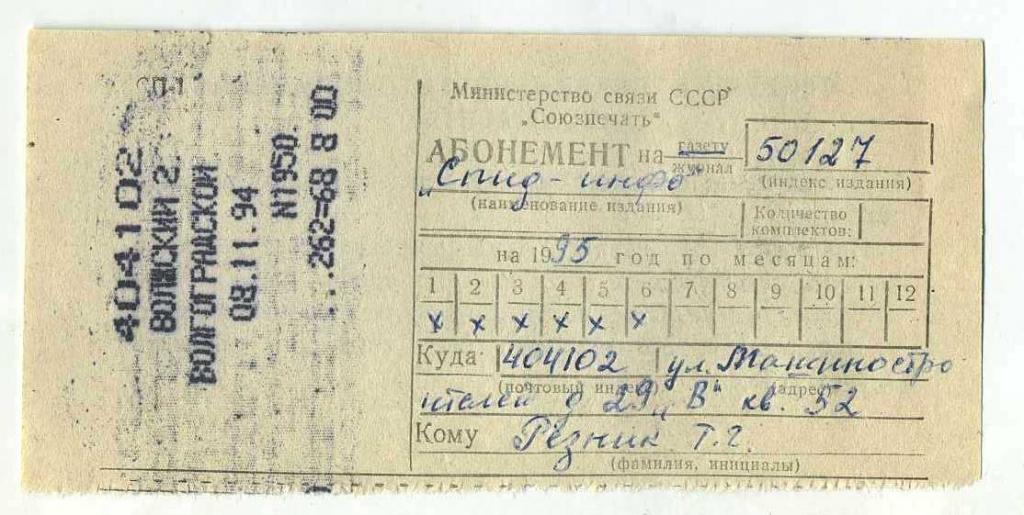 СП-1
404102
ВОЛЖСКИЙ 2.
ВОЛГОГРАДСКОЙ
08.11.94
N1950.
...262=68 8 00
Министерство связи СССР
„Союзпечать“
АБОНЕМЕНТ на газету
журнал
50127
(индекс издания)
„Спид-инфо“
(наименование издания)
Количество
комплектов:
на 1995 год по месяцам:
1 2 3 4 5 6 7 8 9 10 11 12
x x x x x x
Куда 404102 ул. Машиностро
(почтовый индекс) (адрес)
ителей д 29 „В“ кв. 52
Кому Резник Т.Г.
(фамилия, инициалы)